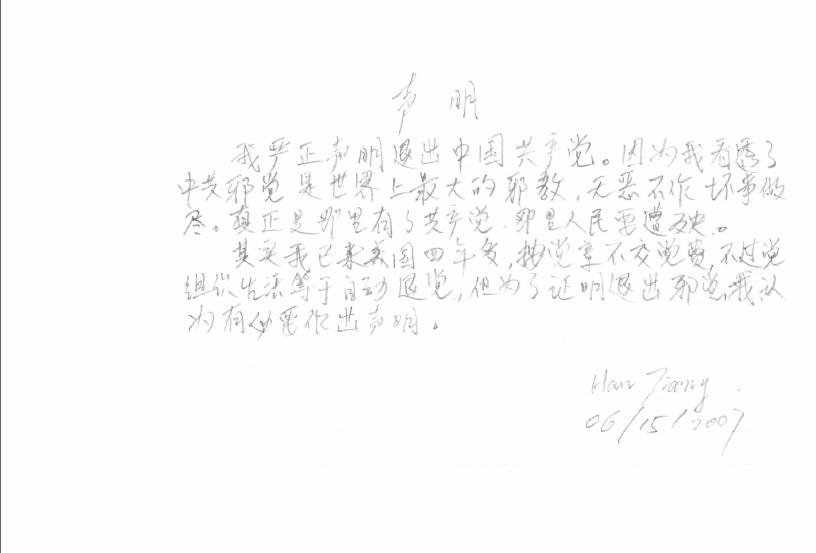 声明
我严正声明退出中国共产党。因为我看透了
中共邪党是世界上最大的邪教,无恶不作坏事做
尽。真正是那里有了共产党,那里人民要遭殃。
其实我已来美国四年多,按党章不交党费,不过党
组织生活等于自动退党,但为了证明退出邪党,我认
为有必要作出声明。
Han Jiang
06/15/2007